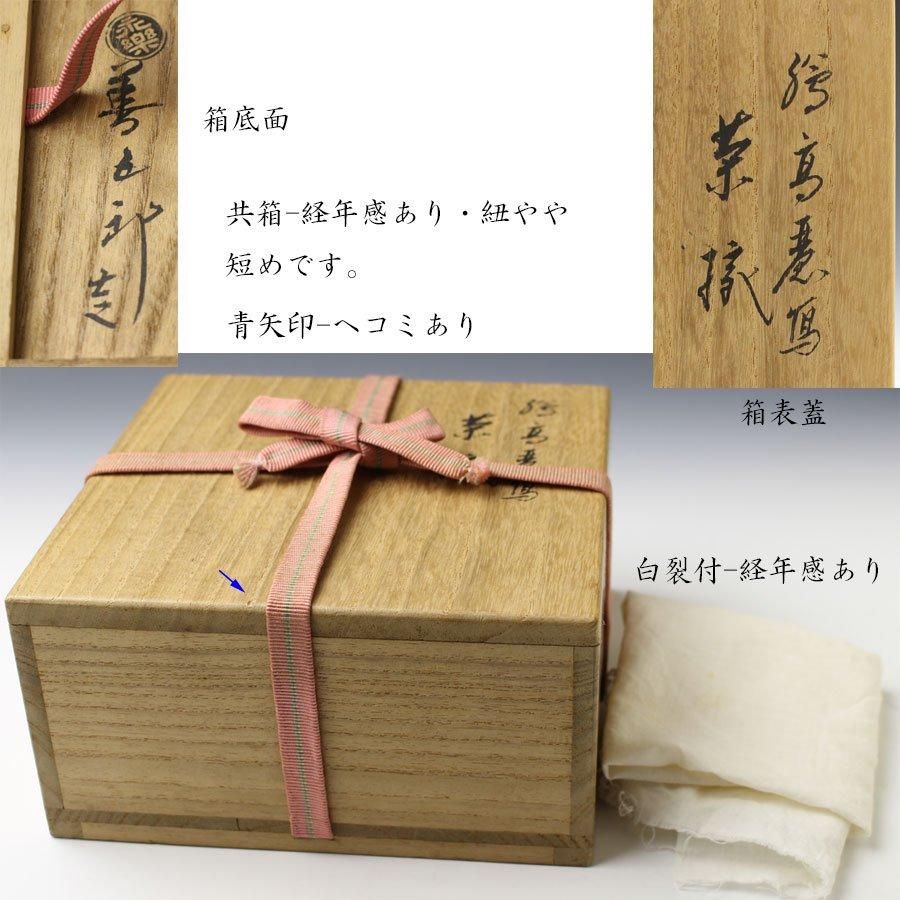 永樂
善五郎造
箱底面
共箱-経年感あり・紐やや
短めです。
青矢印-ヘコミあり
絵高麗写
菓鉢
箱表蓋
絵高麗写
白裂付-経年感あり